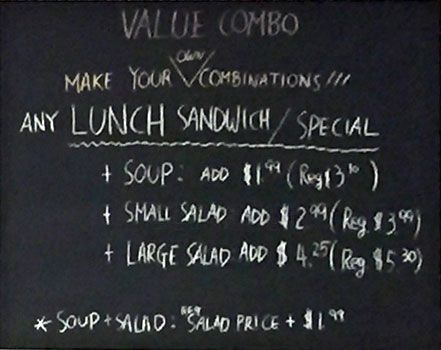 VALUE COMBO
MAKE YOUR OWN COMBINATIONS!!!
ANY LUNCH SANDWICH / SPECIAL
+ SOUP: ADD $1.99 (Reg $3.10)
+ SMALL SALAD ADD $2.99 (Reg $3.99)
+ LARGE SALAD ADD $4.25 (Reg $5.30)
* SOUP + SALAD: REG SALAD PRICE + $1.99